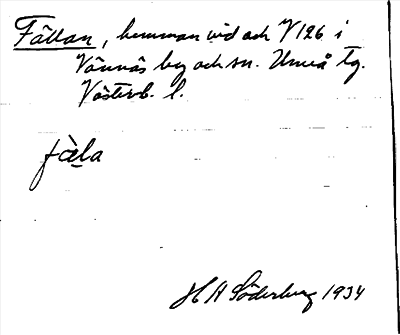 Fällan, hemman vid och V 126 i
Vännäs by och sn. Umeå tg.
Västerb. l.
fäla
H A Söderberg 1934